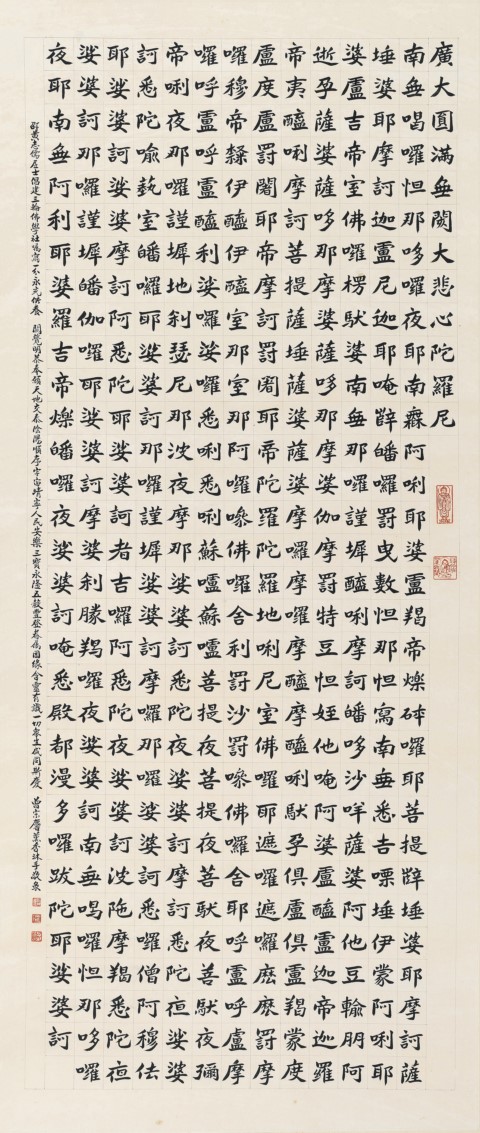 廣大圓滿無閡大悲心陀羅尼
南無喝囉怛那哆囉夜耶南無阿唎耶婆盧羯帝爍砵囉耶菩提薩埵婆耶摩訶薩
埵婆耶摩訶迦盧尼迦耶唵薩皤囉罰曳數怛那怛寫南無悉吉嘌埵伊蒙阿唎耶
婆盧吉帝室佛囉楞馱婆南無那囉謹墀醯唎摩訶皤哆沙咩薩婆阿他豆輸朋阿
逝孕薩婆薩哆那摩婆薩哆那摩婆伽摩罰特豆怛姪他唵阿婆盧醯盧迦帝迦羅
帝夷醯唎摩訶菩提薩埵薩婆薩婆摩囉摩囉摩醯摩醯唎馱孕俱盧俱盧羯蒙度
盧度盧罰闍耶帝摩訶罰闍耶帝陀羅陀羅地唎尼室佛囉耶遮囉遮囉麼麼罰摩
囉穆帝隸伊醯伊醯室那室那阿囉嘇佛囉舍利罰沙罰嘇佛囉舍耶呼盧呼盧摩
囉呼盧呼盧醯利娑囉娑囉悉唎悉唎蘇嚧蘇嚧菩提夜菩提夜菩馱夜菩馱夜彌
帝唎夜那囉謹墀地利瑟尼那波夜摩那娑婆訶悉陀夜娑婆訶摩訶悉陀夜娑婆
訶悉陀喻藝室皤囉耶娑婆訶那囉謹墀娑婆訶摩囉那囉娑婆訶悉囉僧阿穆佉
耶娑婆訶娑婆摩訶阿悉陀夜娑婆訶者吉囉阿悉陀夜娑婆訶波陀摩羯悉陀夜
娑婆訶那囉謹墀皤伽囉耶娑婆訶摩婆利勝羯囉夜娑婆訶南無喝囉怛那哆囉
夜耶南無阿利耶婆羅吉帝爍皤囉夜娑婆訶唵悉殿都漫多囉跋陀耶娑婆訶
居士倡建三輪佛學社 永充供養 天地交泰陰陽順序宇宙清寧人民安樂三寶永隆五穀豐登眷屬因緣含靈有識一切眾生咸同斯慶